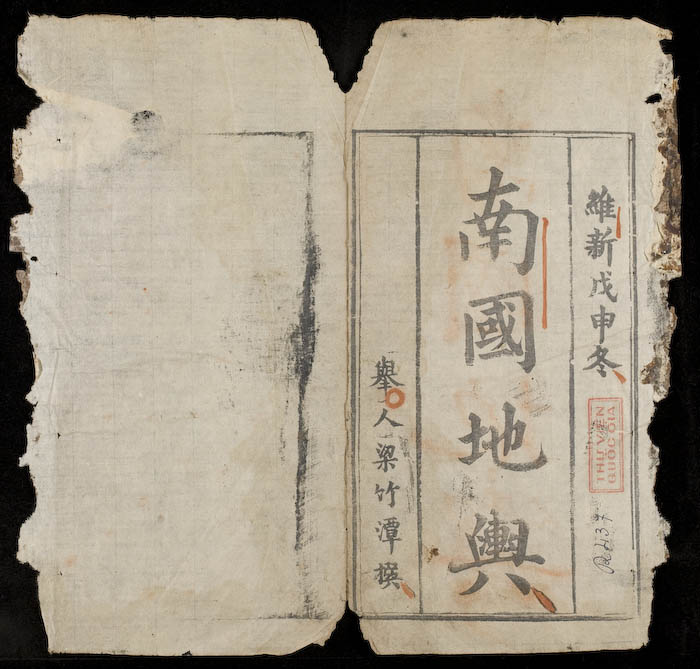 維新戊申冬
南國地輿
舉人梁竹潭撰
THƯ VIỆN
QUỐC GIA